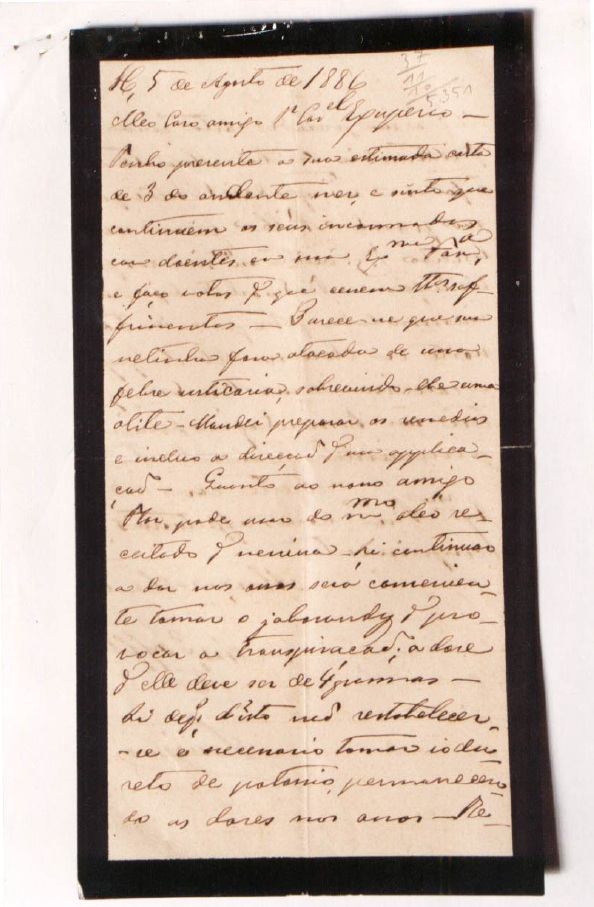 5 de Agosto de 1886
37
11
10
5.351
Meo Caro amigo Snr Cor.el Exuperio —
Tenho presente a sua estimada carta
de 3 do andante mez, e sinto que
continuem os seus incommodos
com doentes em sua Exma Fam.a,
e faço votos pª que cessem ttes suf-
frimentos — Parece-me que sua
netinha fora atacada de uma
febre urticaria, sobrevindo-lhe uma
otite — Mandei preparar os remedios
e incluo a direcçaõ pª sua applica-
çaõ — Quanto ao nosso amigo
pode usar do mmo oleo re-
ceitado pª menina — si continuar
a dor nos será convenien-
te tomar o jaborandy pª pro-
vocar a transpiraçaõ; a dose
pª elle deve ser de 4 grammas —
Si depª d'isto naõ restabelecer-
-se é necessario tomar iodu-
reto de potassio, permanecen-
do as dores nos — Re-